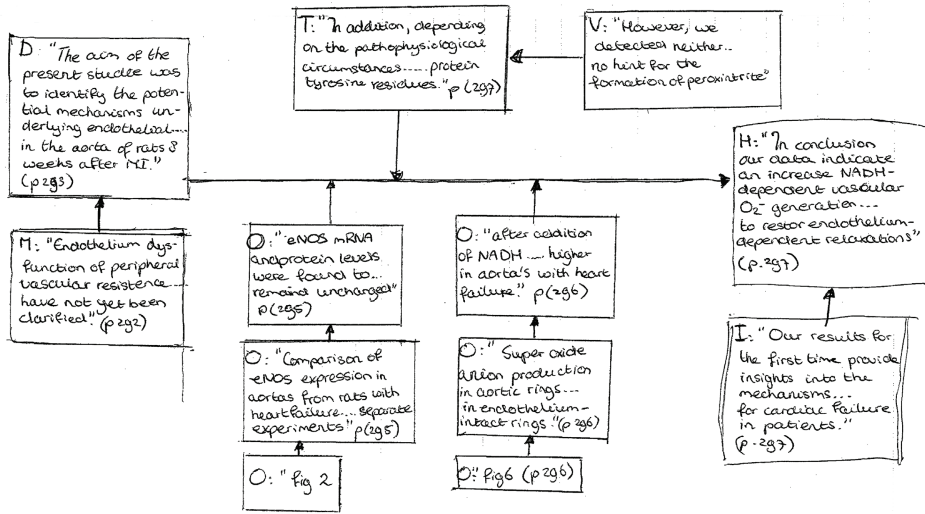 D: "The aim of the
present studee was
to identify the poten-
tial mechanisms un-
derlying endothelial....
in the aorta of rats 8
weeks after MI."
(p 293)
M: "Endothelium dys-
function of peripheral
vascular resistence....
have not yet been
clarified". (p 292)
T: "In addition, depending
on the pathophysiological
circumstances..... protein
tyrosine residues." p (297)
V: "However, we
detected neither..
no hint for the
formation of peroxintrite"
O: "eNOS mRNA
andprotein levels
were found to...
remaind unchanged"
p (295)
O: "Comparison of
eNOS expression in
aortas from rats with
heartfailure.... separate
experiments" p (295)
O: "fig 2
O: "after addition
of NADH .... higher
in aorta's with heart
failure." p (296)
O: "Super oxide
anion production
in aortic rings....
in endothelium-
intact rings "(p 296)
O: "fig6 (p 296)
H: "In conclusion
our data indicate
an increase NADH-
dependent vascular
O₂⁻ generation...
to restor endothelium-
dependent relaxations"
(p. 297)
I: "Our results for
the first time provide
insights into the
mechanisms...
for cardiac failure
in patients."
(p. 297)